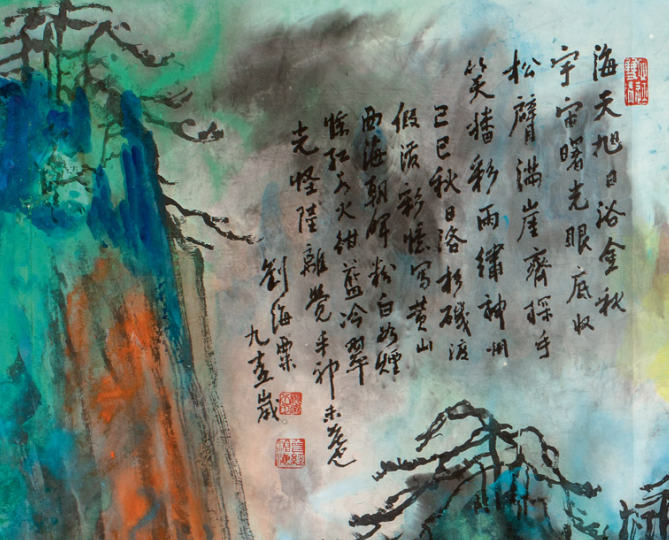 海天旭日浴金秋
宇宙曙光眼底收
松臂滿崖齊探手
笑播彩雨繡神州
己巳秋日洛杉磯渡
假潑彩憶寫黄山
西海朝暉粉白如煙
紅火紺藍冷翠
光怪陸離覺手神未
劉海粟
九歲